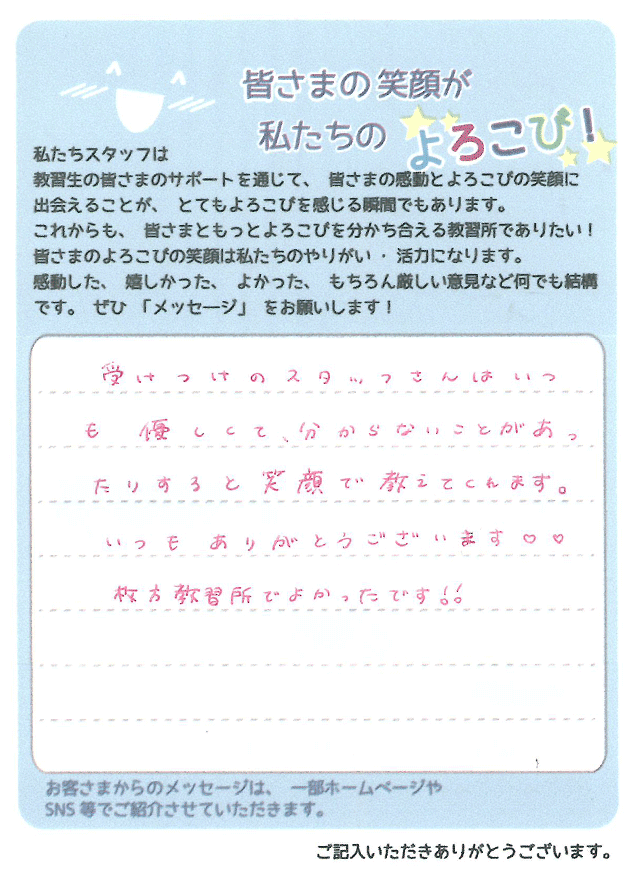 皆さまの笑顔が
私たちの よろこび！
私たちスタッフは
教習生の皆さまのサポートを通じて、 皆さまの感動とよろこびの笑顔に
出会えることが、 とてもよろこびを感じる瞬間でもあります。
これからも、 皆さまともっとよろこびを分かち合える教習所でありたい！
皆さまのよろこびの笑顔は私たちのやりがい・活力になります。
感動した、 嬉しかった、 よかった、 もちろん厳しい意見など何でも結構
です。 ぜひ 「メッセージ」 をお願いします！
受けつけのスタッフさんはいつ
も 優しくて、分からないことがあっ
たりすると笑顔で教えてくれます。
いつもありがとうございます♡♡
枚方教習所でよかったです!!
お客さまからのメッセージは、 一部ホームページや
SNS 等でご紹介させていただきます。
ご記入いただきありがとうございます。